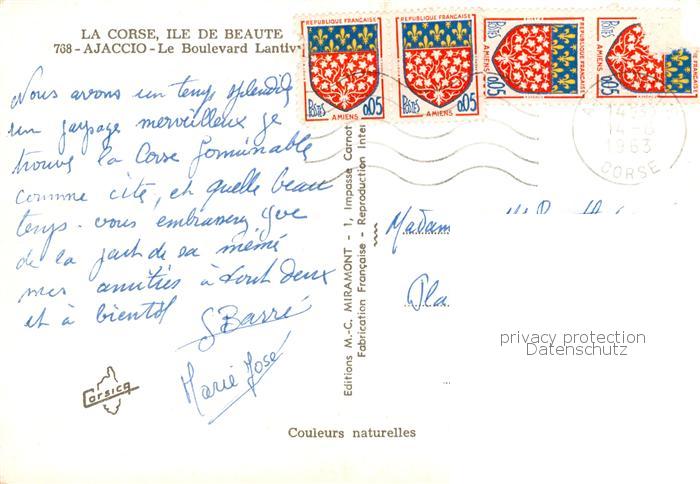 LA CORSE, ILE DE BEAUTE
768 - AJACCIO - Le Boulevard Lantiv
Nous avons un temps splendide
un paysage merveilleux je
trouve la Corse formidable
comme cité, et quelle beau
temps. vous embrasserez
de la part de sa mémé
mes amitiés à tout deux
et à bientôt
S Barré
Marie José
Corsica
Couleurs naturelles
Editions M.-C. MIRAMONT - 1, Impasse Carnot
Fabrication Française - Reproduction Inter
REPUBLIQUE FRANÇAISE
POSTES
0,05
AMIENS
REPUBLIQUE FRANÇAISE
POSTES
0,05
AMIENS
REPUBLIQUE FRANÇAISE
POSTES
0,05
AMIENS
FRANÇAISE
POSTES
0,05
AMIENS
14-8
1963
CORSE
Madam
Pla
privacy protection
Datenschutz